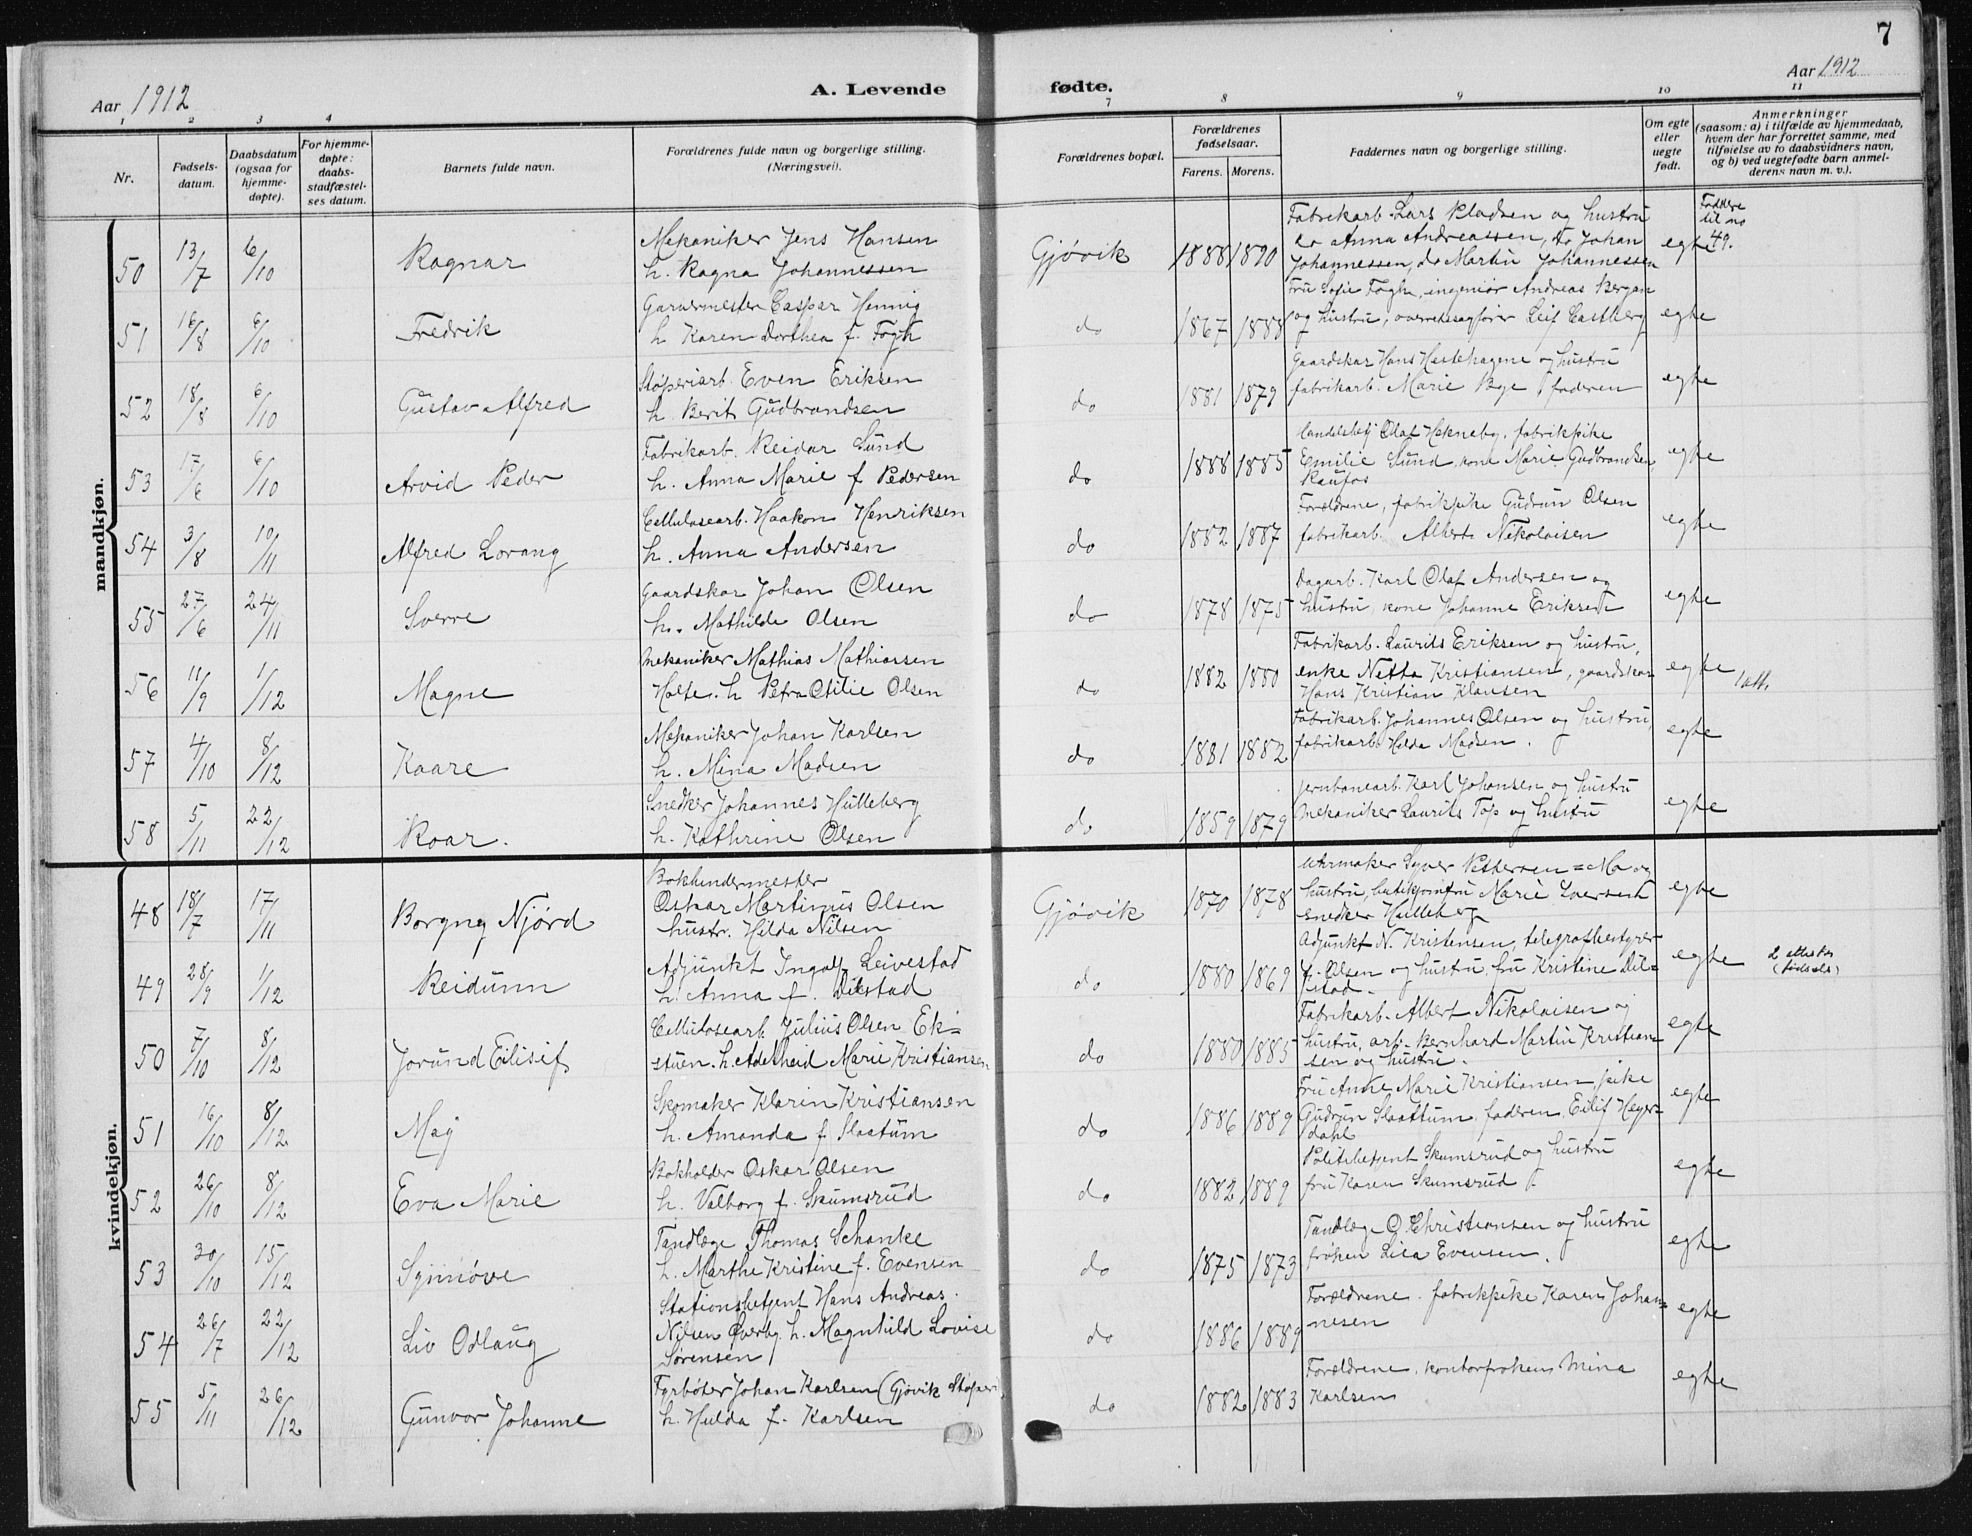 7
Aar 1912
A. Levende fødte.
Aar 1912
1 2 3 4 7 8 9 10 11
Nr.
Fødsels-
datum.
Daabsdatum
(ogsaa for
hjemme-
døpte).
For hjemme-
døpte:
daabs-
stadfæstel-
ses datum.
Barnets fulde navn.
Forældrenes fulde navn og borgerlige stilling.
(Næringsvei).
Forældrenes bopæl.
Forældrenes
fødselsaar.
Farens. Morens.
Faddernes navn og borgerlige stilling.
Om egte
eller
uegte
født.
Anmerkninger
(saasom: a) i tilfælde av hjemmedaab,
hvem der har forrettet samme, med
tilføielse av to daabsvidners navn,
og b) ved uegtefødte barn anmel-
derens navn m. v.).
maandkjøn.
50 13/7 6/10 Ragnar
Mekaniker Jens Hansen
h. Ragna Johannessen
Gjøvik 1888 1890
Fabrikarb. Lars Pladsen og hustru
do Anna Andreassen, do Johan
Johannessen, do Martin Johannessen
egte
Faddere
til no
49.
51 16/8 6/10 Fredrik
Garvermester Caspar Hennig
h Karen Dorthea f. Fogh
do 1867 1883
Fru Sofie Fogh, ingeniør Andreas Bergan
og hustru, overretssagfører Leif Castberg
egte
52 18/8 6/10 Gustav Alfred
Støperiarb. Even Eriksen
h. Berit Gudbrandsen
do 1881 1879
Gaardskar Hans Hastehagene og hustru
fabrikarb. Marie Bye, faderen
egte
53 17/6 6/10 Arvid Peder
Fabrikarb. Reidar Sund
h. Anna Marie f Pedersen
do 1888 1885
Handelsbetj Olaf Hekneby, fabrikpike
Emilie Sund, kone Marie Gudbrandsen,
Raufos
egte
54 3/8 10/11 Alfred Lorang
Cellulosearb. Haakon Henriksen
h. Anna Andersen
do 1882 1887
Forældrene, fabrikpike Gudrun Olsen
fabrikarb. Albert Nikolaisen
egte
55 27/6 24/11 Sverre
Gaardskar Johan Olsen
h. Mathilde Olsen
do 1878 1875
Dagarb. Karl Olaf Andersen og
hustru, kone Johanne Eriksen
egte
56 11/9 1/12 Magne
Mekaniker Mathias Mathiassen
Holte. h Petra Otilie Olsen
do 1882 1880
Fabrikarb. Laurits Eriksen og hustru,
enke Netta Kristiansen, gaardskar
Hans Kristian Klausen
egte 1 att.
57 4/10 8/12 Kaare
Mekaniker Johan Karlsen
h. Mina Madsen
do 1881 1882
Fabrikarb. Johannes Olsen og hustru,
fabrikarb. Hilda Madsen.
egte
58 5/11 22/12 Roar.
Snedker Johannes Hulleberg
h. Kathrine Olsen
do 1859 1879
Jernbanearb. Karl Johansen og hustru
Mekaniker Laurits Top og hustru
egte
kvindekjøn.
48 18/7 17/11 Borgny Njørd
Bokbindermester
Oskar Martinius Olsen
hustr. Hilda Nilsen
Gjøvik 1870 1878
Uhrmaker Syver Pettersen = Mo og
hustru, butikjomfru Marie Iversen
snedker Hulleberg
egte
49 28/9 1/12 Reidunn
Adjunkt Ingolf Leivestad
h. Anna f. Dilstad
do 1880 1869
Adjunkt N. Kristensen, telegrafbestyrer
Olsen og hustru, fru Kristine Dil=
stad.
egte 2 attester
(fødsels)
50 7/10 8/12 Jorund Eilisif
Cellulosearb. Julius Olsen Ek=
stuen. h. Adelheid Marie Kristiansen
do 1880 1885
Fabrikarb. Albert Nikolaisen og
hustru, arb. Bernhard Martin Kristian=
sen og hustru.
egte
51 16/10 8/12 Maij
Skomaker Klarin Kristiansen
h. Amanda f Slaatum
do 1886 1889
Fru Anne Marie Kristiansen, pike
Gudrun Slaattum, faderen, Eilif Heyer=
dahl
egte
52 26/10 8/12 Eva Marie
Bokholder Oskar Olsen
h. Valborg f. Skumsrud
do 1882 1889
Politibetjent Skumsrud og hustru
fru Karen Skumsrud
egte
53 30/10 15/12 Synnøve
Tandlæge Thomas Schanke
h. Marthe Kristine f. Evensen
do 1875 1873
Tandlæge O. Christiansen og hustru
frøken Lisa Evensen.
egte
54 26/7 22/12 Liv Odlaug
Stationsbetjent Hans Andreas
Nilsen Øverby h. Magnhild Lovise
Sørensen
do 1886 1889
Forældrene. fabrikpike Karen Johan=
nesen
egte
55 5/11 26/12 Gunvor Johanne
Fyrbøter Johan Karlsen (Gjøvik Støperi)
h. Hulda f. Karlsen
do 1882 1883
Forældrene. kontorfrøken Mina
Karlsen
egte